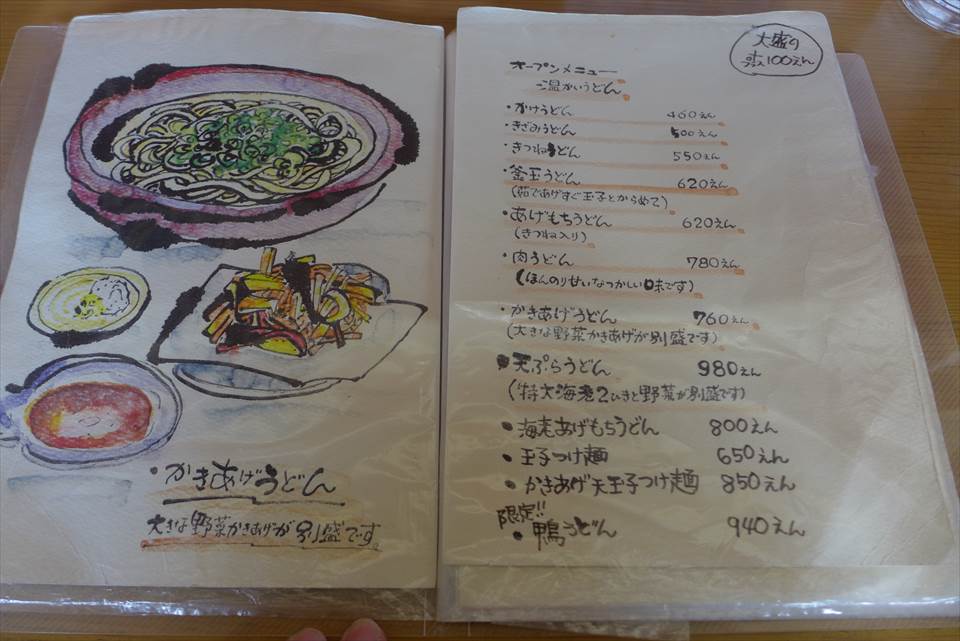 ・かきあげうどん
大きな野菜かきあげが別盛です
大盛り
プラス100えん
オープンメニュー
温かいうどん
・かけうどん 460えん
・きざみうどん 500えん
・きつねうどん 550えん
・釜玉うどん 620えん
(茹であげすぐ玉子とからめて)
・あげもちうどん 620えん
(きつね入り)
・肉うどん 780えん
(ほんのりせいなつかしい味です)
・かきあげうどん 760えん
(大きな野菜かきあげが別盛です)
・天ぷらうどん 980えん
(特大海老2ひきと野菜が別盛です)
・海老あげもちうどん 800えん
・玉子つけ麺 650えん
・かきあげ天玉子つけ麺 850えん
限定!!
・鴨うどん 940えん